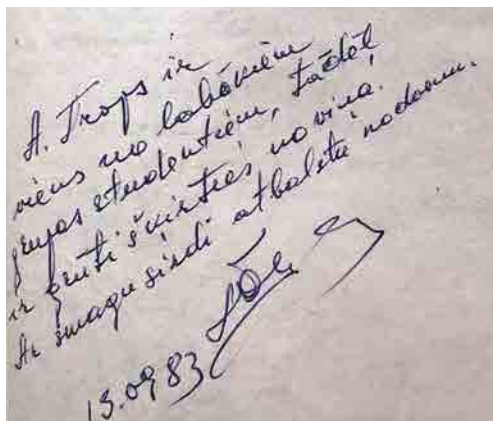 A. Trops ir
viens no labākiem
grupas studentiem, tādēļ
ir grūti šķirties no viņa.
Ar smagu sirdi atbalstu nodomu.
13.09.83